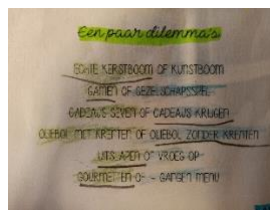 Een paar dilemma's
ECHTE KERSTBOOM OF KUNSTBOOM
GAMEN OF GEZELSCHAPSSPEL
CADEAUS GEVEN OF CADEAUS KRIJGEN
OLIEBOL MET KRENTEN OF OLIEBOL ZONDER KRENTEN
UITSLAPEN OF VROEG OP
GOURMETTEN OF - GANGEN MENU